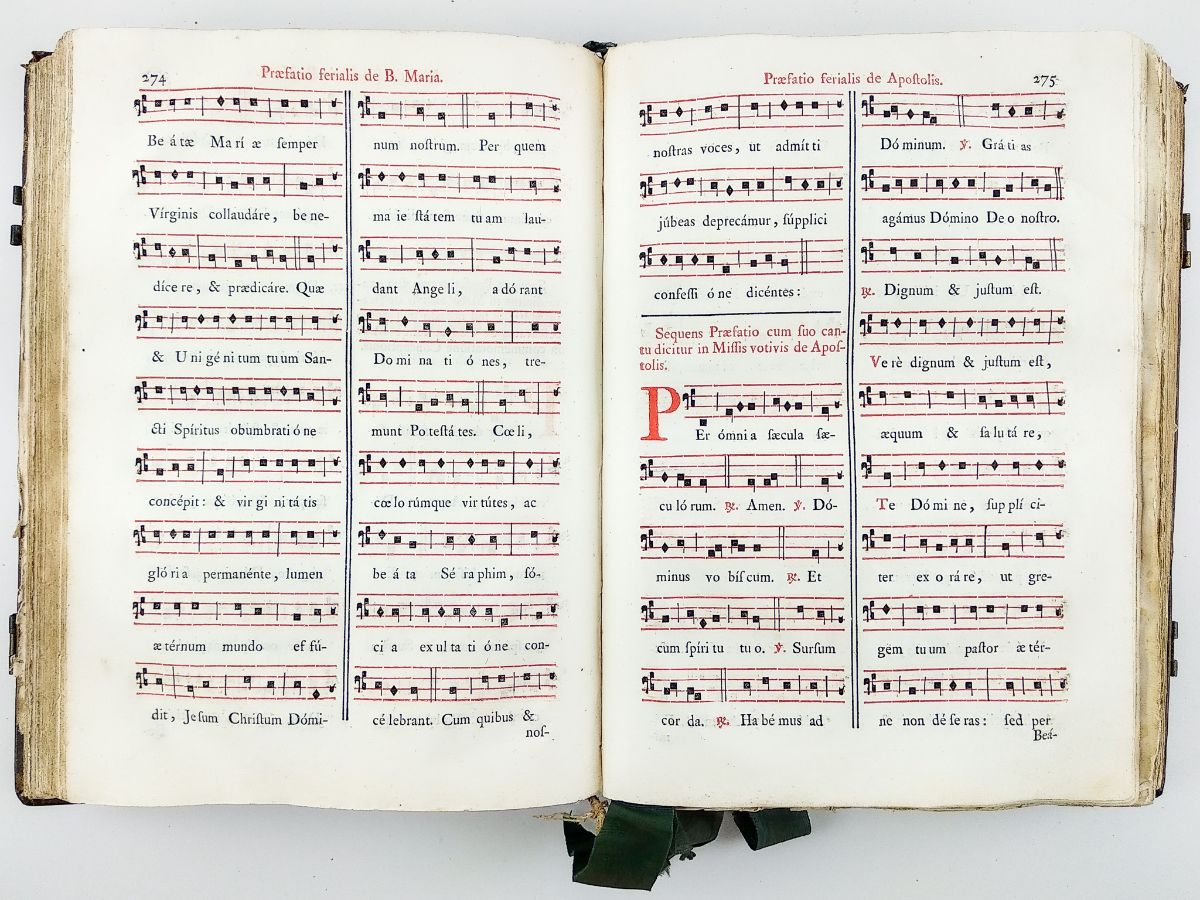 274
Præfatio ferialis de B. Maria.
Be á tæ Ma rí æ ſemper
Vírginis collaudáre, be ne-
díce re, & prædicáre. Quæ
& U ni gé ni tum tu um San-
cti Spíritus obumbrati ó ne
concépit: & vir gi ni tá tis
gló ri a permanénte, lumen
æ térnum mundo ef fú-
dit, Je ſum Chriſtum Dómi-
num noſtrum. Per quem
ma ie ſtá tem tu am lau-
dant Ange li, a dó rant
Do mi na ti ó nes, tre-
munt Po teſtá tes. Cœ li,
cœ lo rúmque vir tútes, ac
be á ta Sé ra phim, ſó-
ci a ex ul ta ti ó ne con-
cé lebrant. Cum quibus &
noſ-
Præfatio ferialis de Apoſtolis.
275
noſtras voces, ut admít ti
júbeas deprecámur, ſúpplici
confeſſi ó ne dicéntes:
Sequens Præfatio cum ſuo can-
tu dicitur in Miſſis votivis de Apoſ-
tolis.
PEr ómni a ſæcula ſæ-
cu ló rum. ℟. Amen. ℣. Dó-
minus vo bíſ cum. ℟. Et
cum ſpíri tu tu o. ℣. Surſum
cor da. ℟. Ha bé mus ad
Dó minum. ℣. Grá ti as
agámus Dómino De o noſtro.
℟. Dignum & juſtum eſt.
Ve rè dignum & juſtum eſt,
æquum & ſa lu tá re,
Te Dó mi ne, ſup plí ci-
ter ex o rá re, ut gre-
gem tu um paſtor æ tér-
ne non dé ſe ras: ſed per
Beá-